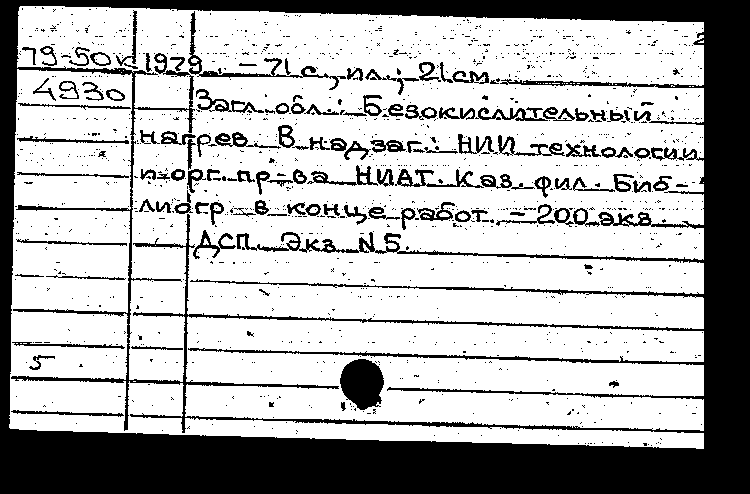 2
79-50к 1979. - 71 с., ил.; 21 см.
4930 Загл. обл.: Безокислительный
нагрев. В надзаг.: НИИ технологии
и орг. пр-ва НИАТ. Каз. фил. Биб-
лиогр. в конце работ. - 200 экз.
ДСП. Экз. N 5.
5